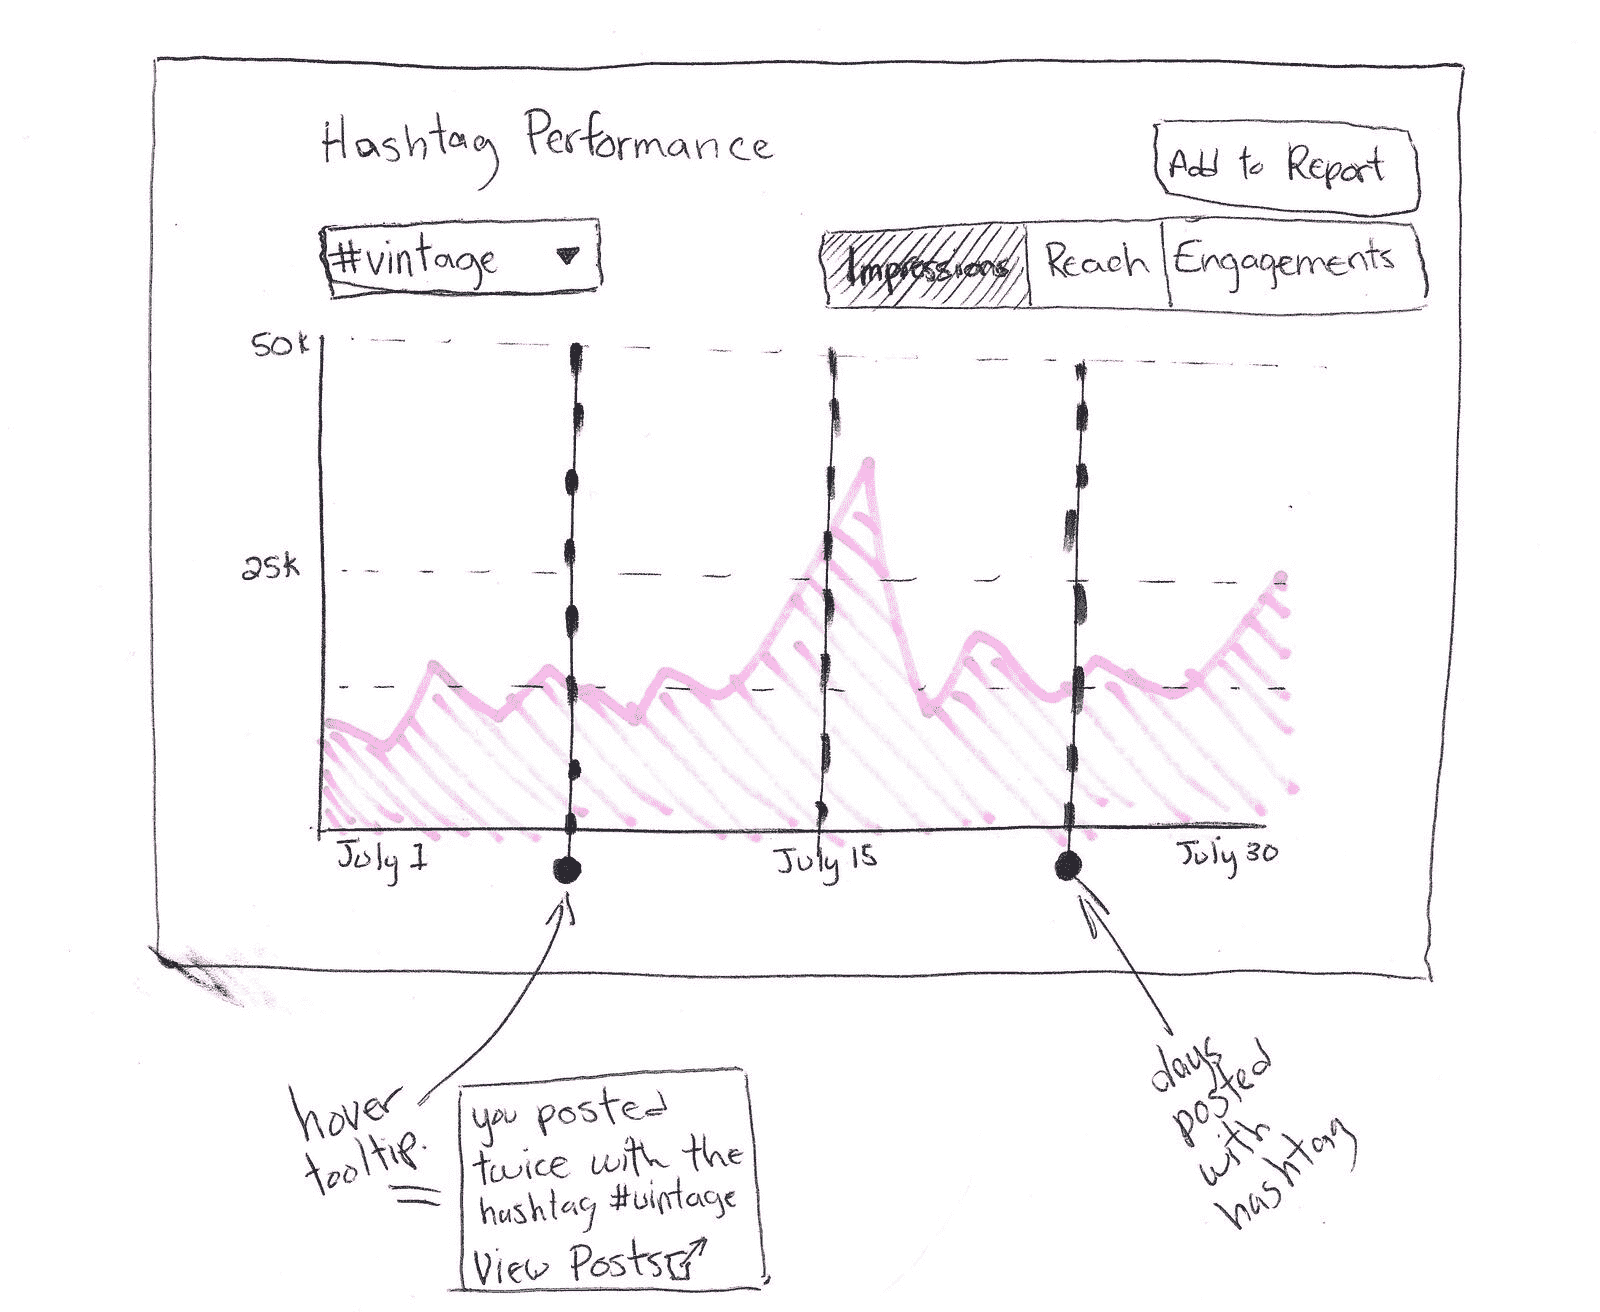 Hashtag Performance
Add to Report
#vintage
Impressions
Reach
Engagements
50k
25k
July 1
July 15
July 30
hover
tooltip.
you posted
twice with the
hashtag #vintage
View Posts
days
posted
with
hashtag